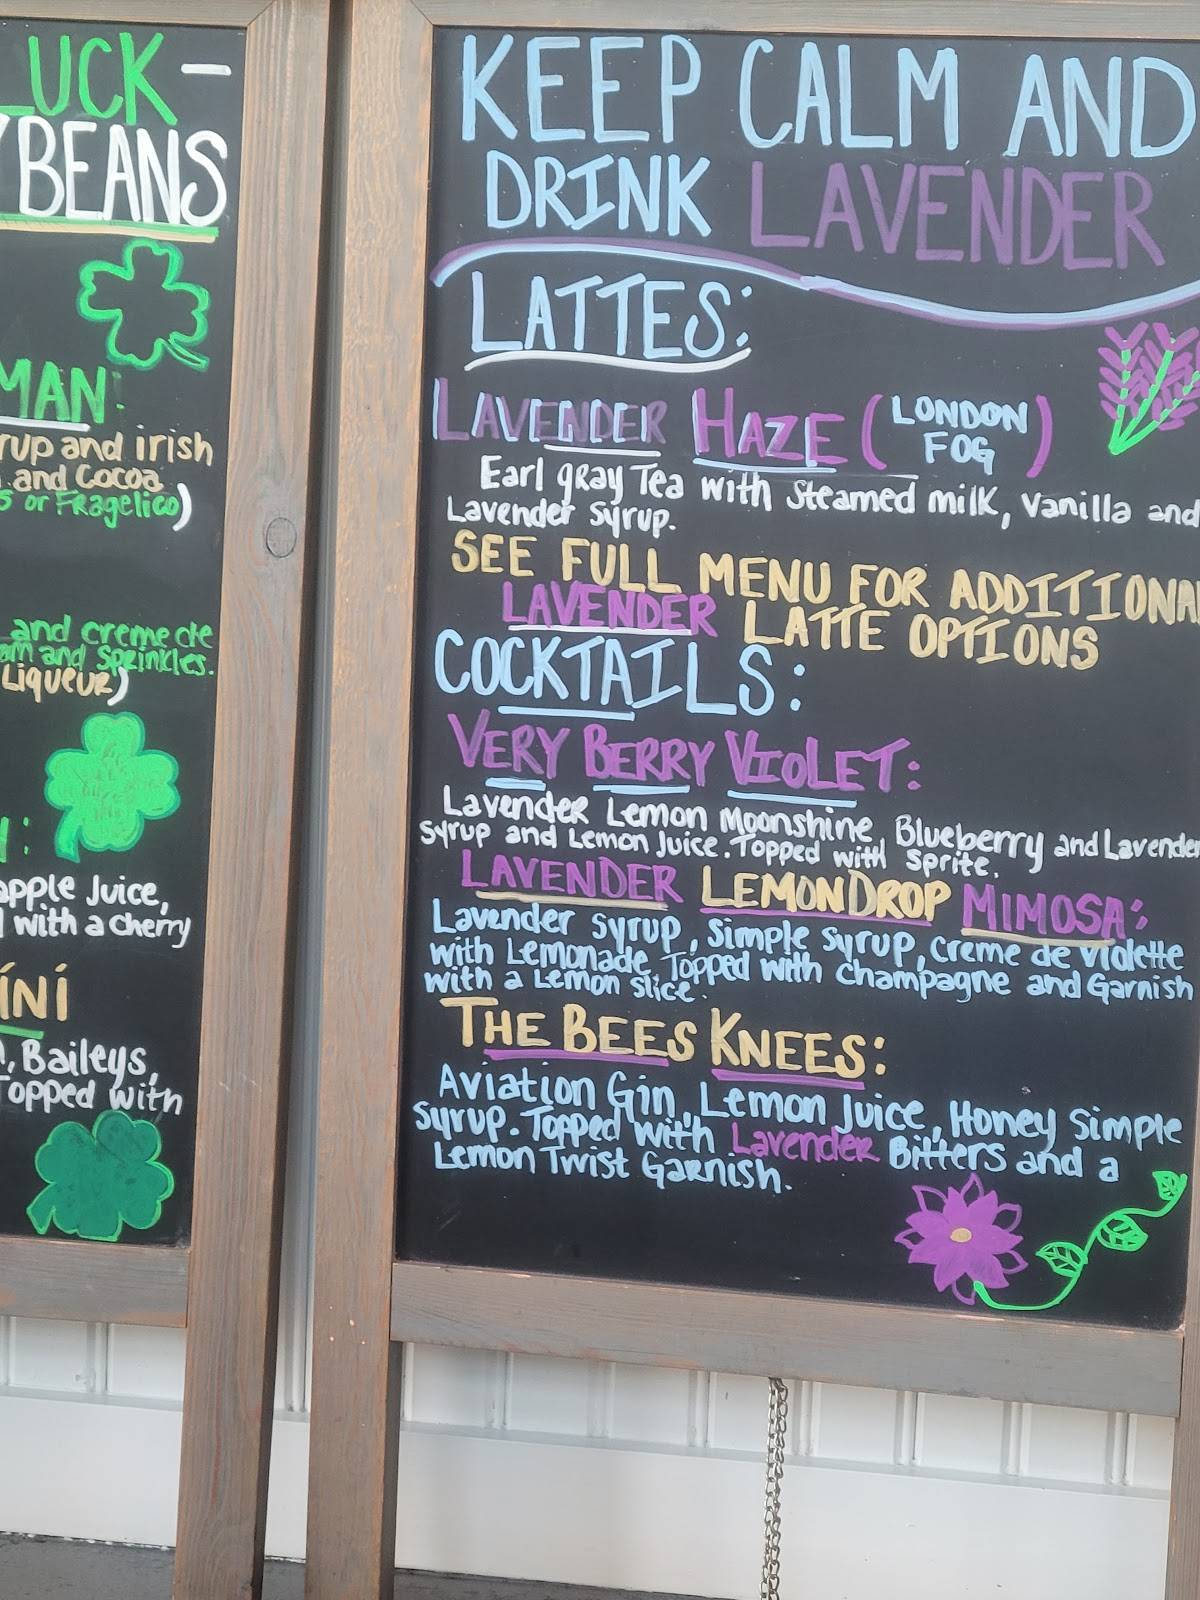 LUCK -
BEANS
MAN:
rup and irish
and Cocoa
or Fragelico)
and creme de
and Sprinkles.
Liqueur)
apple Juice,
with a cherry
ÍNÍ
, Baileys,
Topped with
KEEP CALM AND
DRINK LAVENDER
LATTES:
LAVENDER HAZE (LONDON
FOG)
Earl gray Tea with steamed milk, vanilla and
Lavender syrup.
SEE FULL MENU FOR ADDITIONA
LAVENDER LATTE OPTIONS
COCKTAILS:
VERY BERRY VIOLET:
Lavender Lemon Moonshine, Blueberry and Lavender
syrup and Lemon Juice. Topped with Sprite.
LAVENDER LEMONDROP MIMOSA:
Lavender syrup, simple syrup, creme de violette
with Lemonade. Topped with champagne and Garnish
with a Lemon slice.
THE BEES KNEES:
Aviation Gin, Lemon Juice, Honey Simple
syrup. Topped with Lavender Bitters and a
Lemon Twist Garnish.